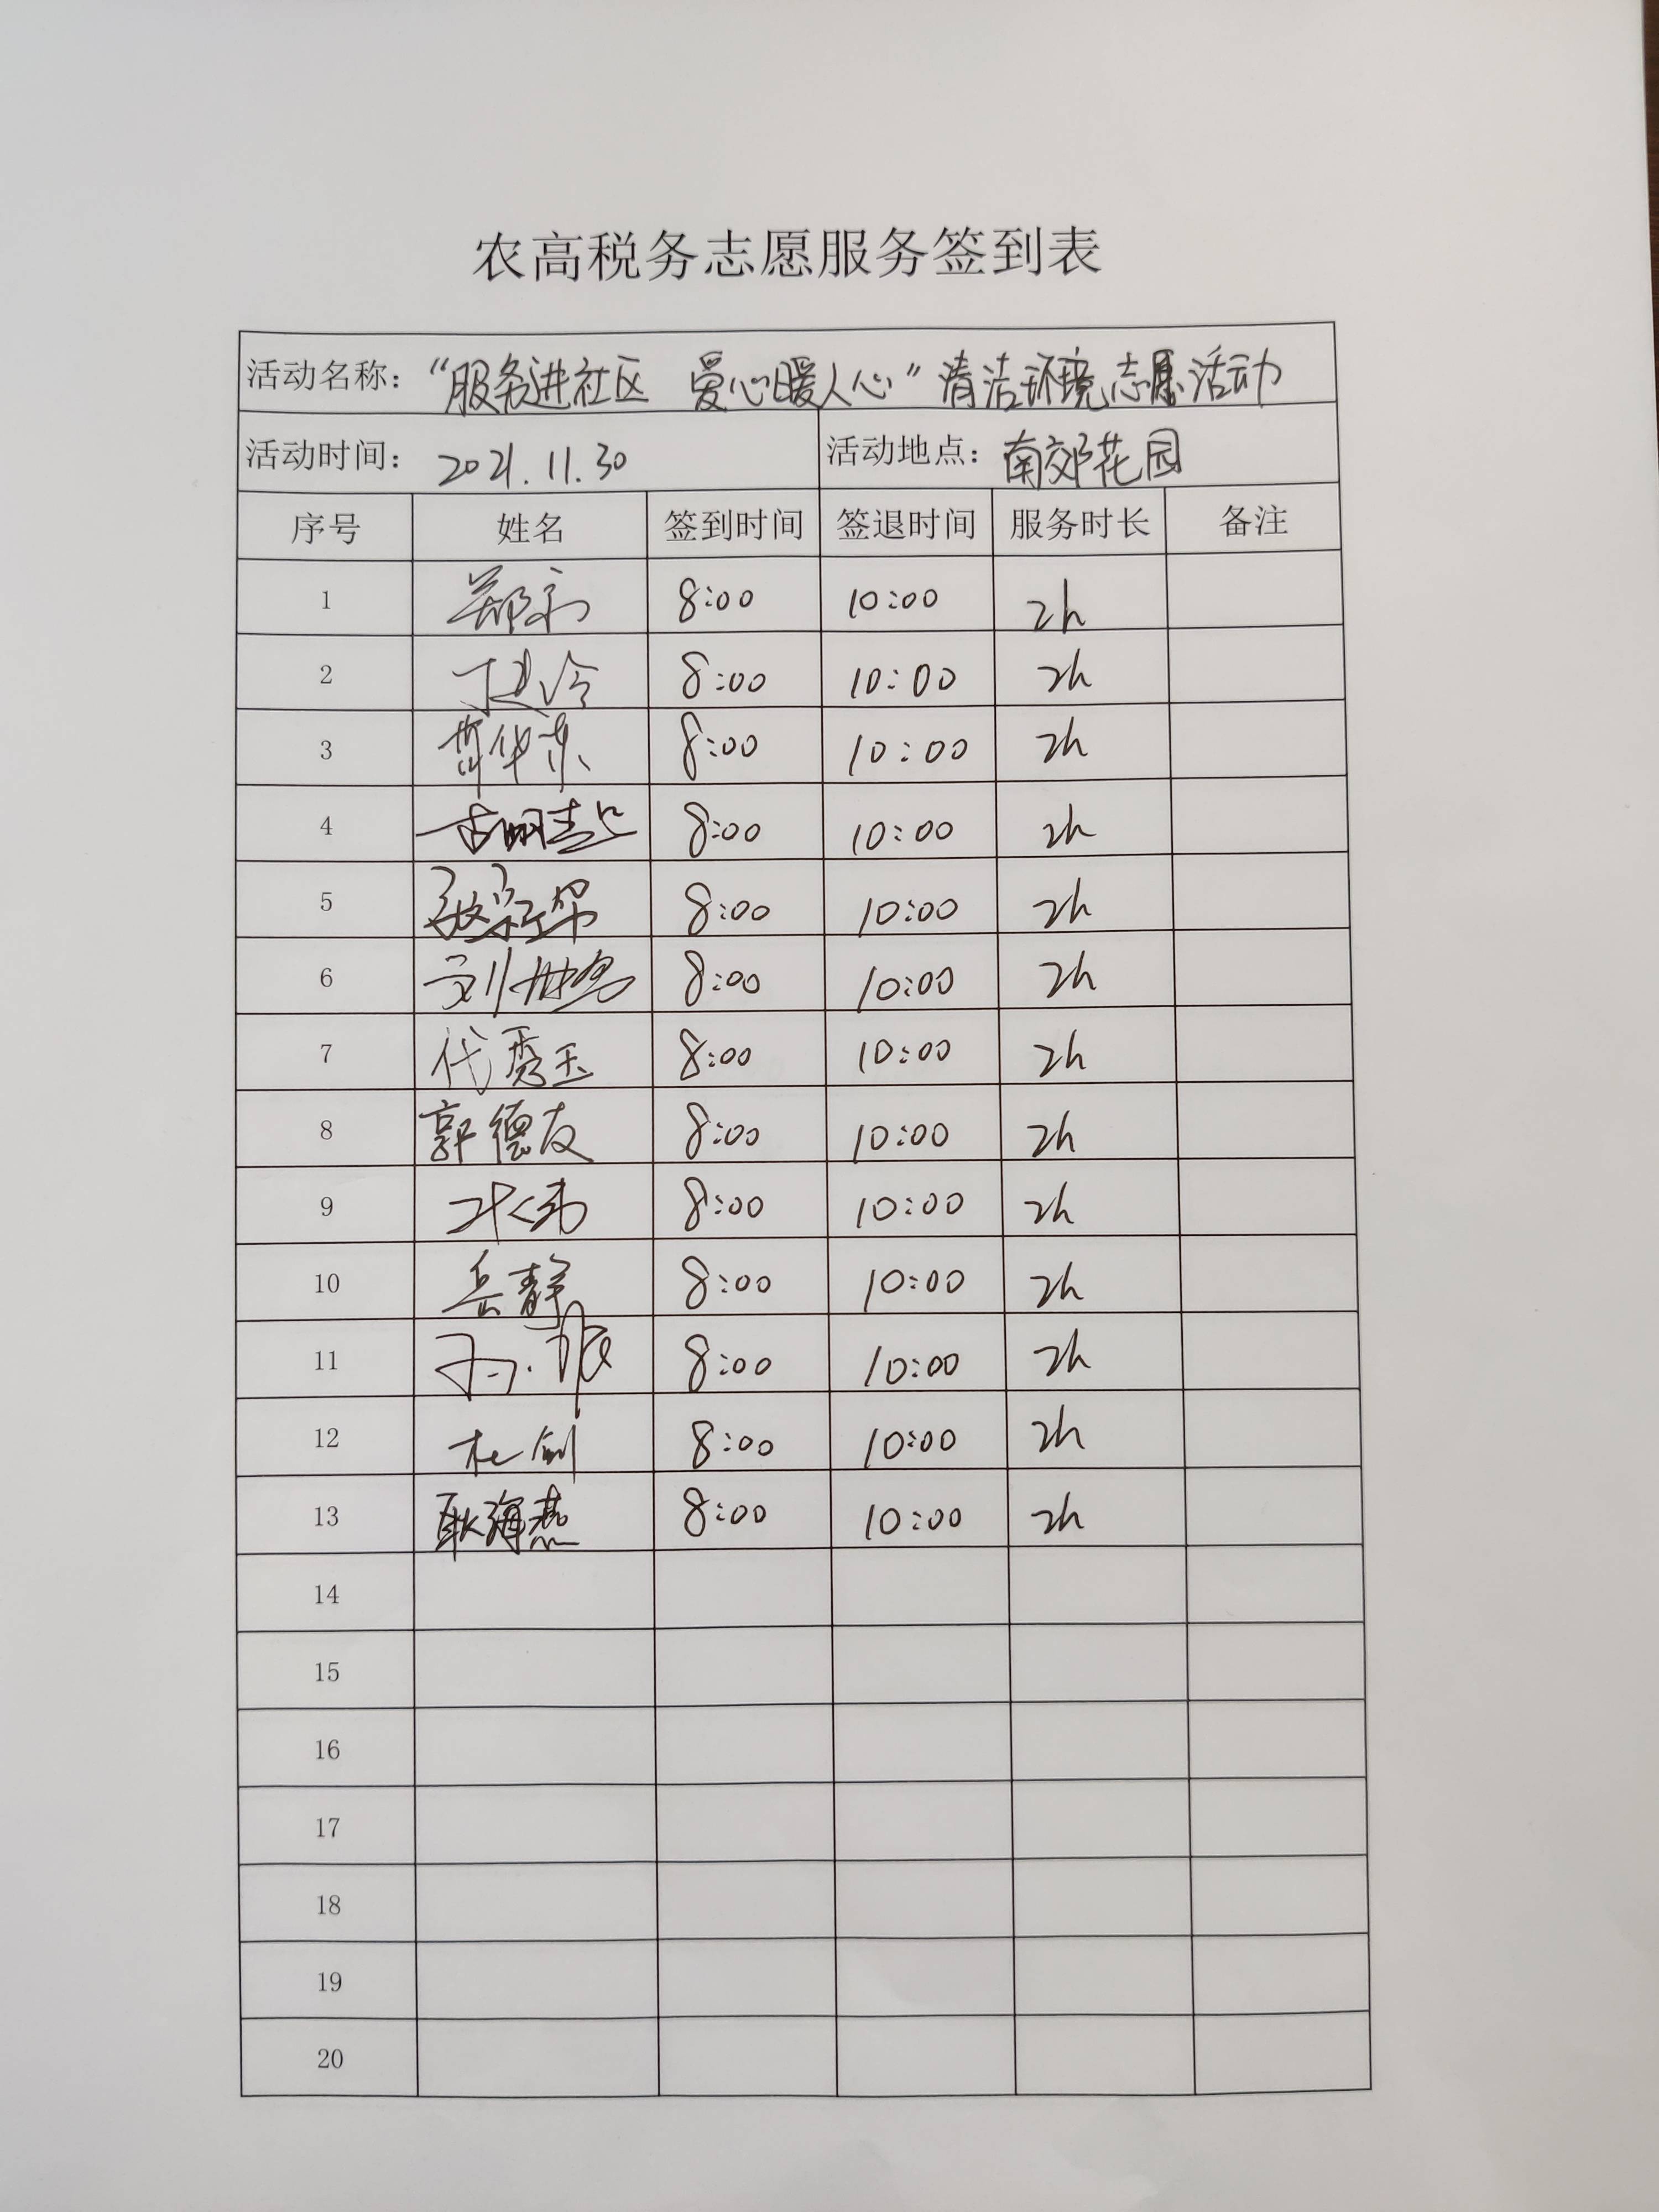 农高税务志愿服务签到表
活动名称：“服务进社区 爱心暖人心”清洁环境志愿活动
活动时间：2021.11.30 活动地点：南郊花园
序号 姓名 签到时间 签退时间 服务时长 备注
1 8:00 10:00 2h
2 8:00 10:00 2h
3 8:00 10:00 2h
4 8:00 10:00 2h
5 8:00 10:00 2h
6 8:00 10:00 2h
7 代秀玉 8:00 10:00 2h
8 郭德友 8:00 10:00 2h
9 8:00 10:00 2h
10 岳静 8:00 10:00 2h
11 8:00 10:00 2h
12 杜剑 8:00 10:00 2h
13 耿海燕 8:00 10:00 2h
14
15
16
17
18
19
20